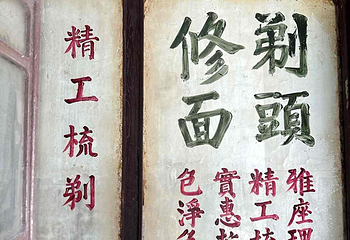 剃頭
修面
雅座理
精工梳
實惠
色淨
精工梳剃